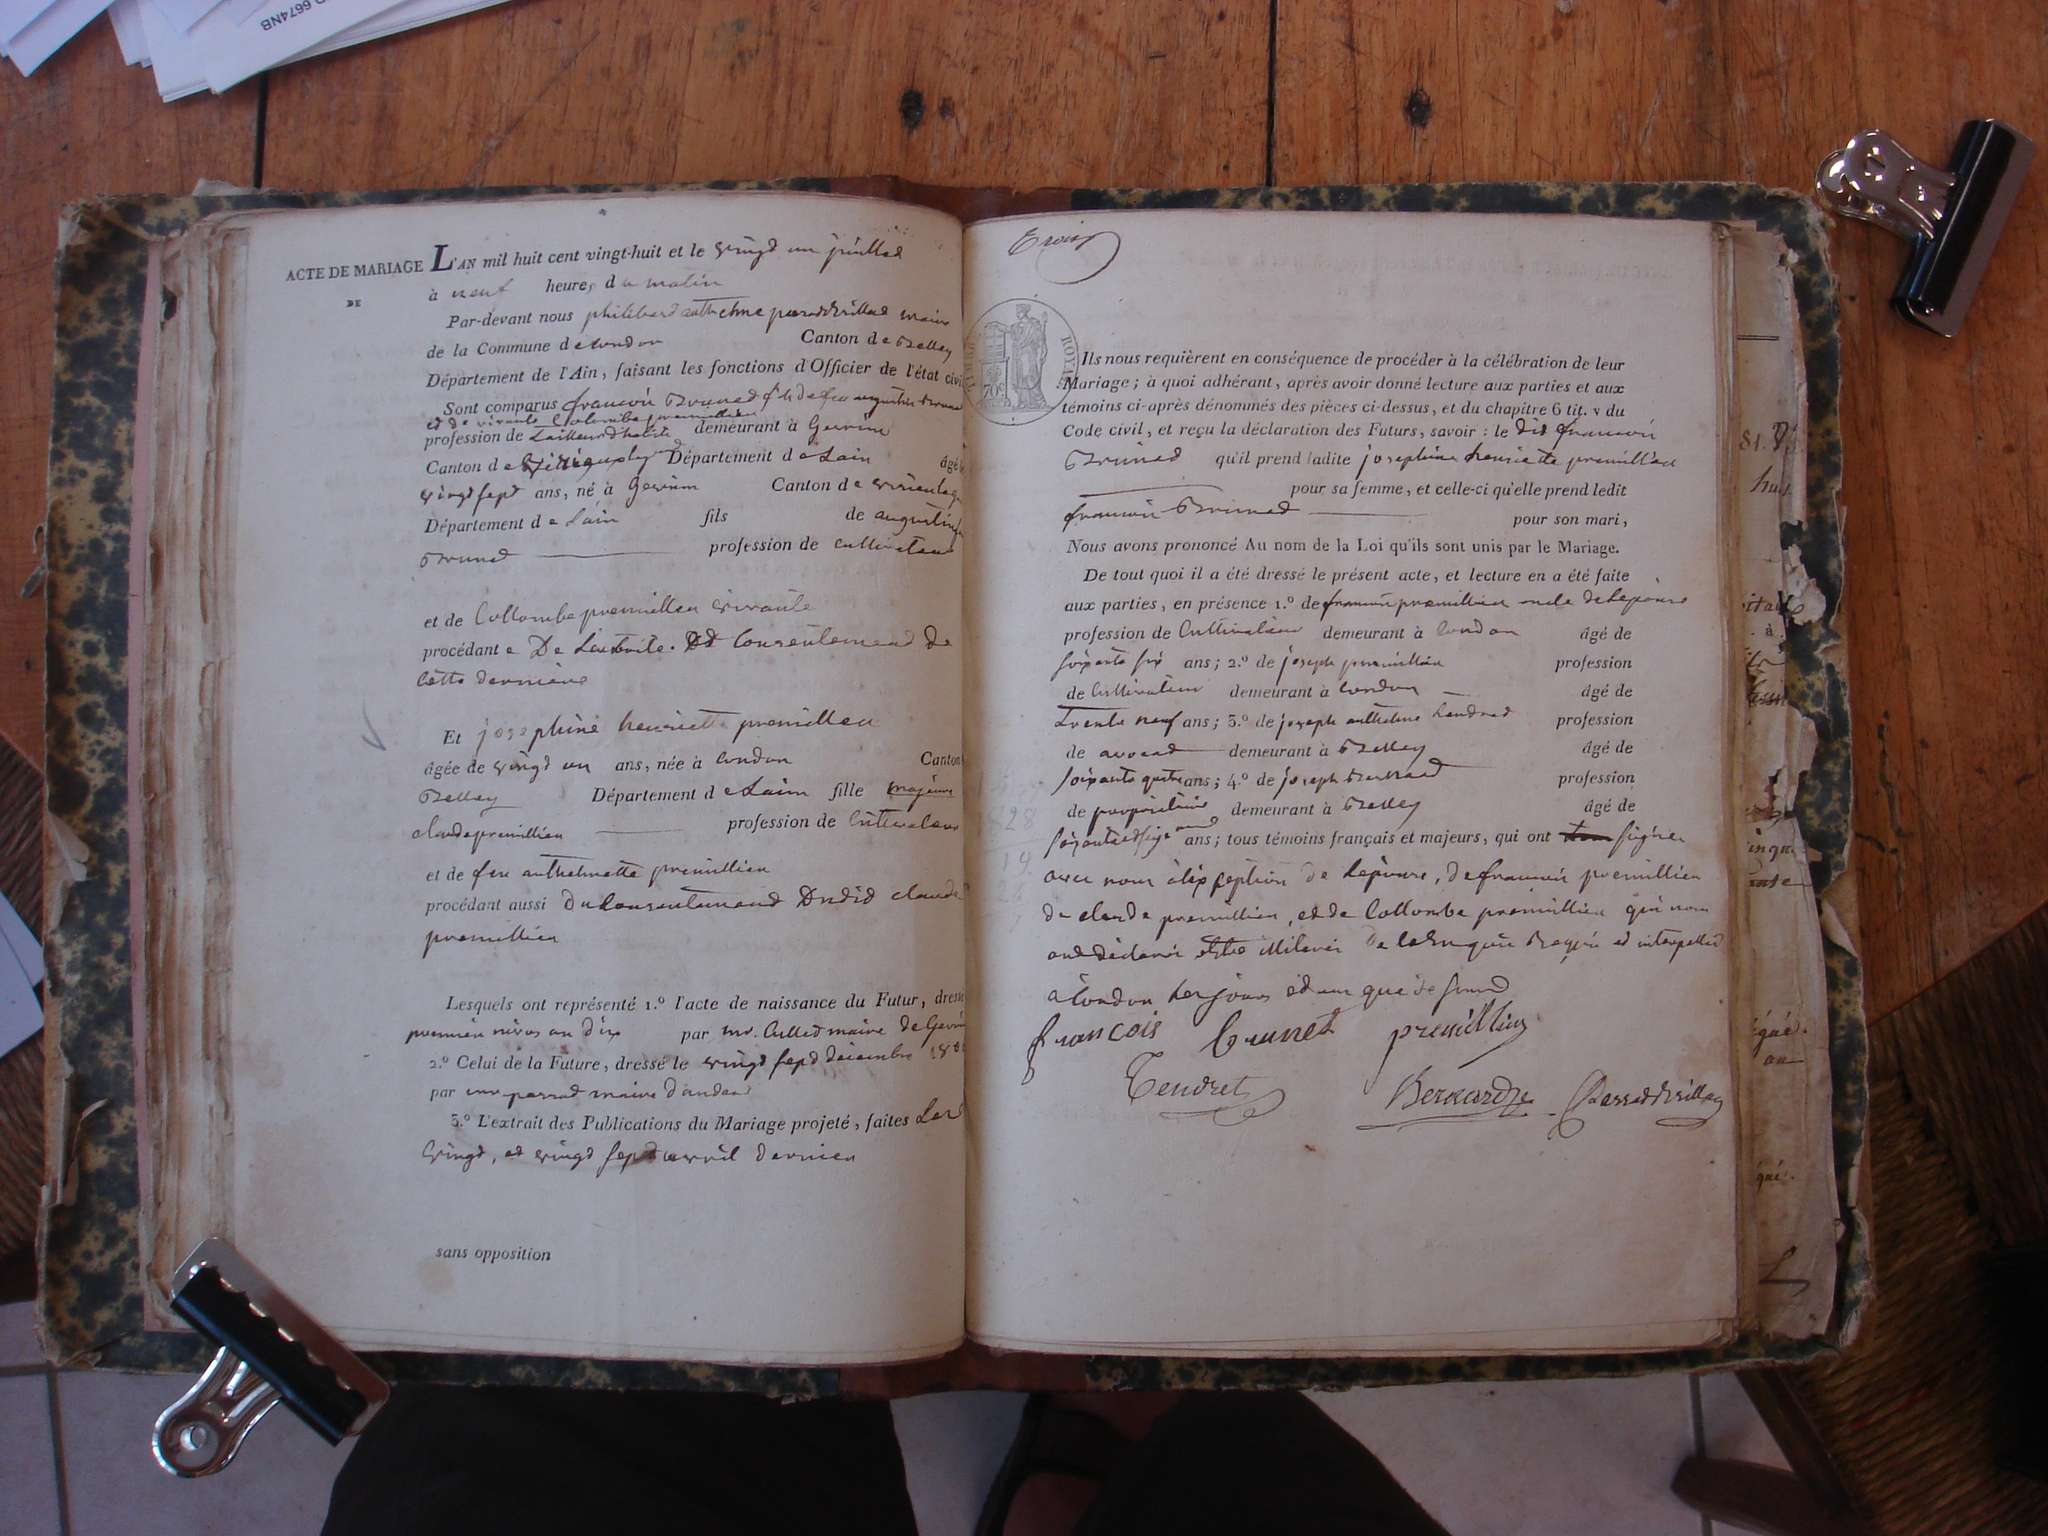 6674NB
ACTE DE MARIAGE
DE
L'AN mil huit cent vingt-huit et le vingt un juillet
à neuf heures du matin
Par-devant nous philibert anthelme parrat brillat maire
de la Commune de Condon Canton de Belley
Département de l'Ain, faisant les fonctions d'Officier de l'état civil
Sont comparus françois Brunet fils de feu augustin Brunet
et de vivante Colombe premillieu
profession de tailleur d'habits demeurant à Gevrin
Canton de Département de Lain âgé
vingt sept ans, né à Gevrin Canton de
Département de Lain fils de augustin
Brunet profession de cultivateur
et de Collombe premillieu vivante
procédant e De Consentement De
Cette derniere
Et josephine henriette premillieu
âgée de vingt un ans, née à Condon Canton
Belley Département de Lain fille majeure
claude premillieu profession de Cultivateur
et de feu anthelmette premillieu
procédant aussi du Consentement Dudid claude
premillieu
Lesquels ont représenté 1.º l'acte de naissance du Futur, dressé
premier nivos an dix par mr. Cullet maire de Gevrin
2.º Celui de la Future, dressé le vingt sept décembre
par mr parrat maire d'andert
3.º L'extrait des Publications du Mariage projeté, faites Les
vingt, et vingt sept avril dernier
sans opposition
ROYAL
70c
Ils nous requièrent en conséquence de procéder à la célébration de leur
Mariage; à quoi adhérant, après avoir donné lecture aux parties et aux
témoins ci-après dénommés des pièces ci-dessus, et du chapitre 6 tit. v du
Code civil, et reçu la déclaration des Futurs, savoir : le dit françois
Brunet qu'il prend ladite josephine henriete premillieu
pour sa femme, et celle-ci qu'elle prend ledit
françois Brunet pour son mari,
Nous avons prononcé Au nom de la Loi qu'ils sont unis par le Mariage.
De tout quoi il a été dressé le présent acte, et lecture en a été faite
aux parties, en présence 1.º de françois premillieu oncle de Lepouse
profession de Cultivateur demeurant à Condon âgé de
soixante six ans; 2.º de joseph premillieu profession
de Cultivateur demeurant à Condon âgé de
trente neuf ans; 3.º de joseph anthelme tendret profession
de avocat demeurant à Belley âgé de
soixante quatre ans; 4.º de joseph Bernard profession
de propriétaire demeurant à Belley âgé de
ans; tous témoins français et majeurs, qui ont signer
avec nous à lexception de Lepouse, de françois premillieu
de claude premillieu, et de Collombe premillieu qui nous
ont déclaré être illiterés De ce enquis requis et interpellés
a Condon Les jours et an que de sus
françois brunet premillieu
Tendret Bernard Parrat Brillat